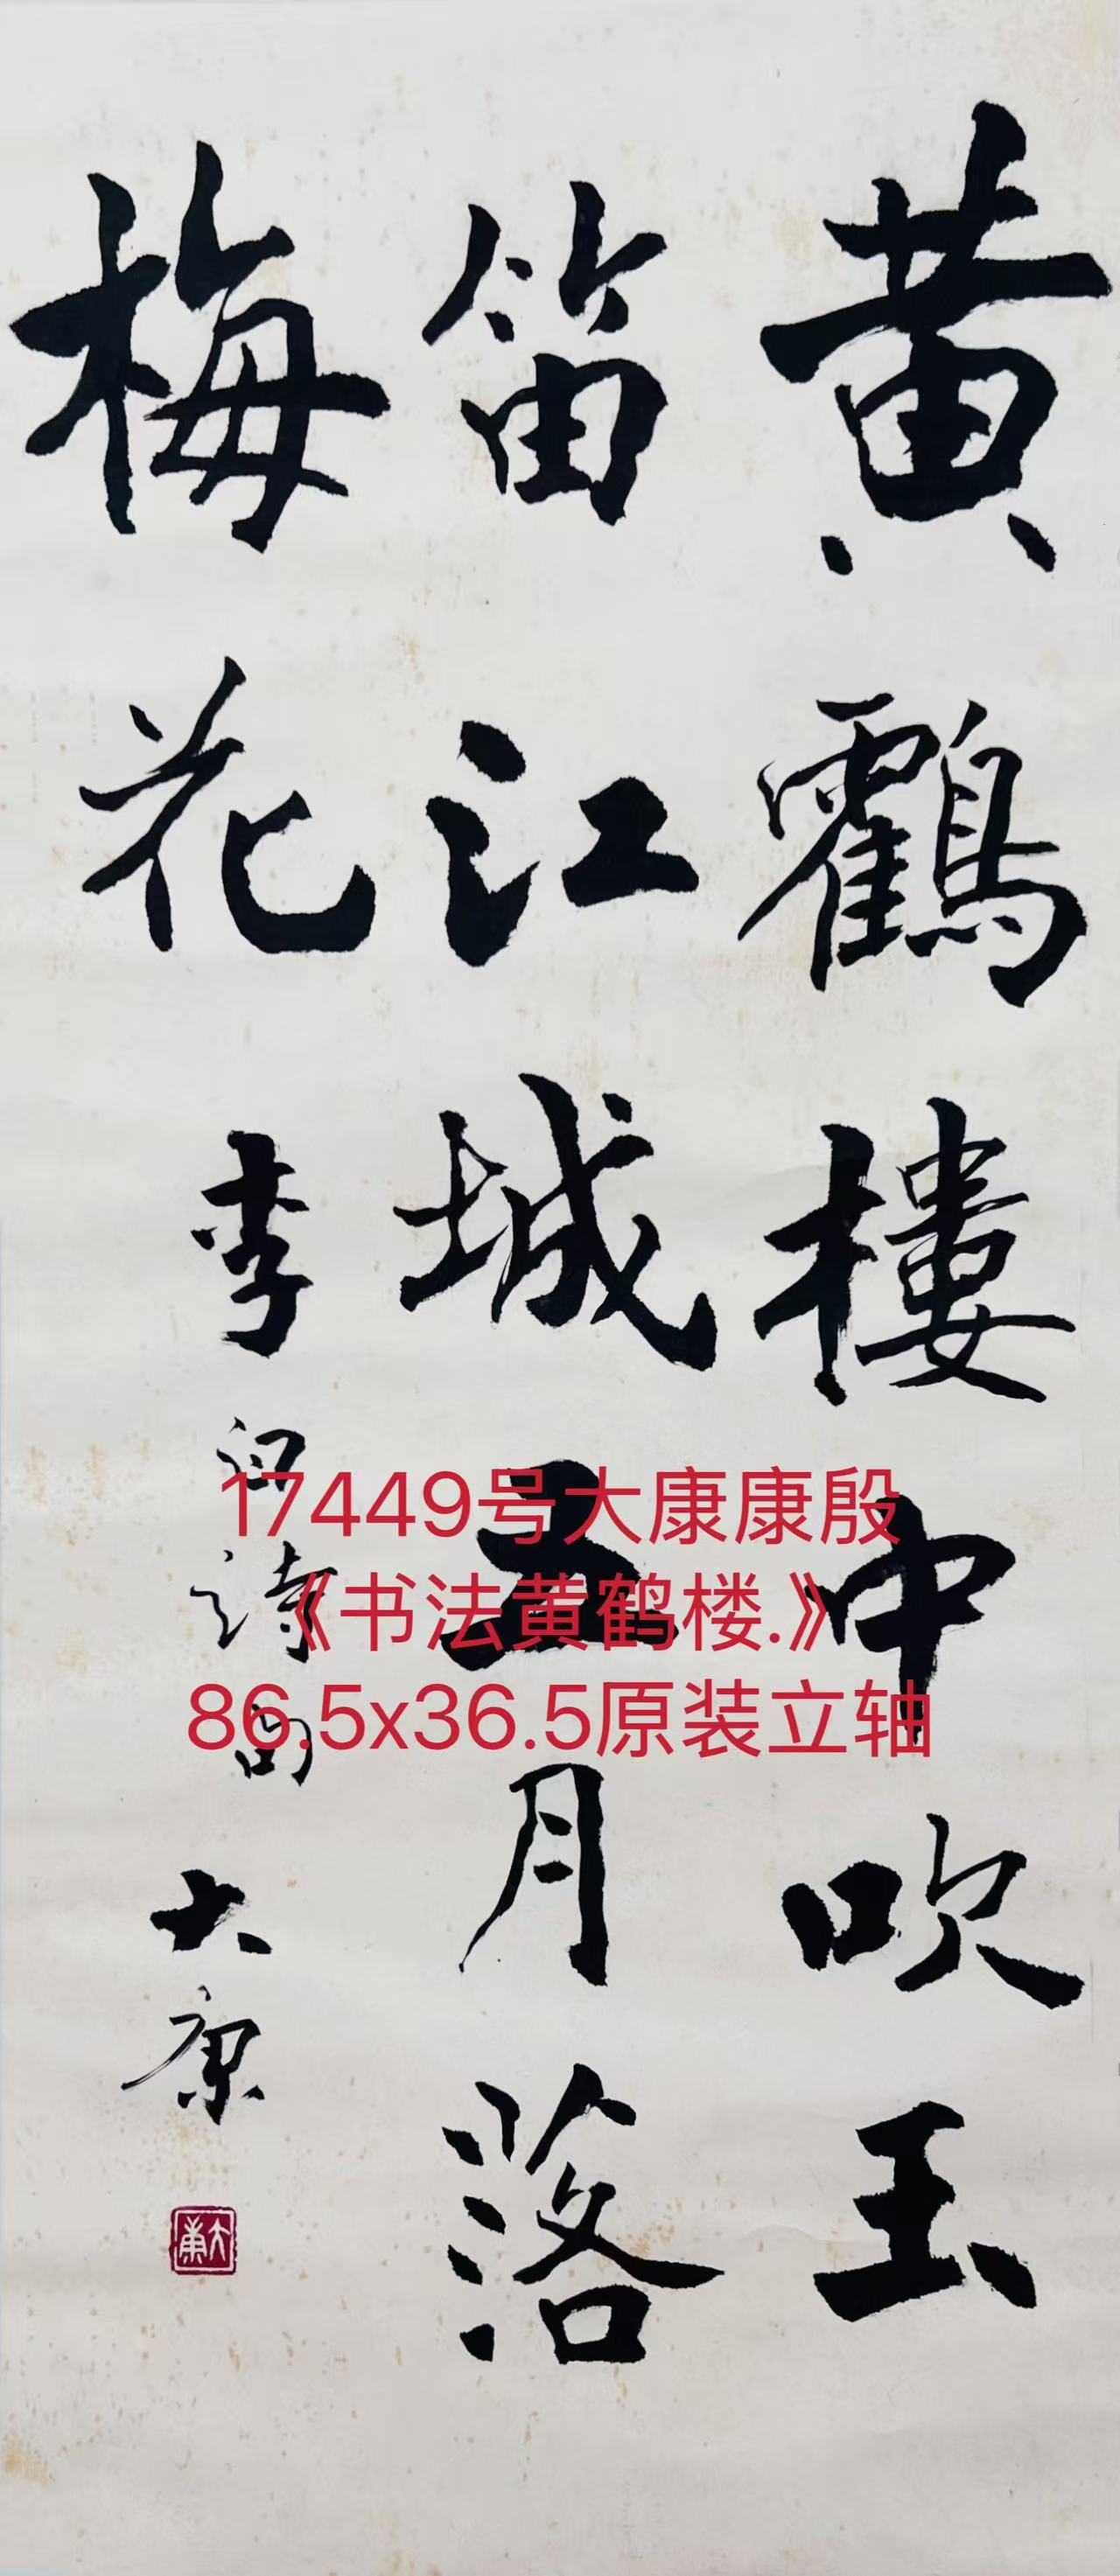 黄鶴樓中吹玉
笛江城五月落
梅花
李白詩句
大康
大康
17449号大康康殷
《书法黄鹤楼.》
86.5x36.5原装立轴